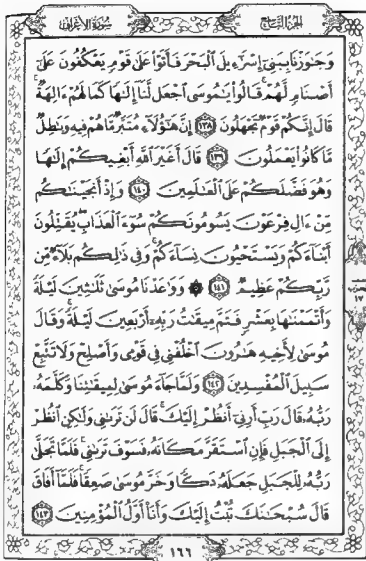 الجزء التاسع سورة الأعراف
وَجَٰوَزْنَا بِبَنِىٓ إِسْرَٰٓءِيلَ ٱلْبَحْرَ فَأَتَوْا۟ عَلَىٰ قَوْمٍ يَعْكُفُونَ عَلَىٰٓ
أَصْنَامٍ لَّهُمْ ۚ قَالُوا۟ يَٰمُوسَى ٱجْعَل لَّنَآ إِلَٰهًا كَمَا لَهُمْ ءَالِهَةٌ ۚ
قَالَ إِنَّكُمْ قَوْمٌ تَجْهَلُونَ ١٣٨ إِنَّ هَٰٓؤُلَآءِ مُتَبَّرٌ مَّا هُمْ فِيهِ وَبَٰطِلٌ
مَّا كَانُوا۟ يَعْمَلُونَ ١٣٩ قَالَ أَغَيْرَ ٱللَّهِ أَبْغِيكُمْ إِلَٰهًا
وَهُوَ فَضَّلَكُمْ عَلَى ٱلْعَٰلَمِينَ ١٤٠ وَإِذْ أَنجَيْنَٰكُم
مِّنْ ءَالِ فِرْعَوْنَ يَسُومُونَكُمْ سُوٓءَ ٱلْعَذَابِ ۖ يُقَتِّلُونَ
أَبْنَآءَكُمْ وَيَسْتَحْيُونَ نِسَآءَكُمْ ۚ وَفِى ذَٰلِكُم بَلَآءٌ مِّن
رَّبِّكُمْ عَظِيمٌ ١٤١ ۞ وَوَٰعَدْنَا مُوسَىٰ ثَلَٰثِينَ لَيْلَةً
وَأَتْمَمْنَٰهَا بِعَشْرٍ فَتَمَّ مِيقَٰتُ رَبِّهِۦٓ أَرْبَعِينَ لَيْلَةً ۚ وَقَالَ
مُوسَىٰ لِأَخِيهِ هَٰرُونَ ٱخْلُفْنِى فِى قَوْمِى وَأَصْلِحْ وَلَا تَتَّبِعْ
سَبِيلَ ٱلْمُفْسِدِينَ ١٤٢ وَلَمَّا جَآءَ مُوسَىٰ لِمِيقَٰتِنَا وَكَلَّمَهُۥ
رَبُّهُۥ قَالَ رَبِّ أَرِنِىٓ أَنظُرْ إِلَيْكَ ۚ قَالَ لَن تَرَىٰنِى وَلَٰكِنِ ٱنظُرْ
إِلَى ٱلْجَبَلِ فَإِنِ ٱسْتَقَرَّ مَكَانَهُۥ فَسَوْفَ تَرَىٰنِى ۚ فَلَمَّا تَجَلَّىٰ
رَبُّهُۥ لِلْجَبَلِ جَعَلَهُۥ دَكًّا وَخَرَّ مُوسَىٰ صَعِقًا ۚ فَلَمَّآ أَفَاقَ
قَالَ سُبْحَٰنَكَ تُبْتُ إِلَيْكَ وَأَنَا۠ أَوَّلُ ٱلْمُؤْمِنِينَ ١٤٣
١٦٦